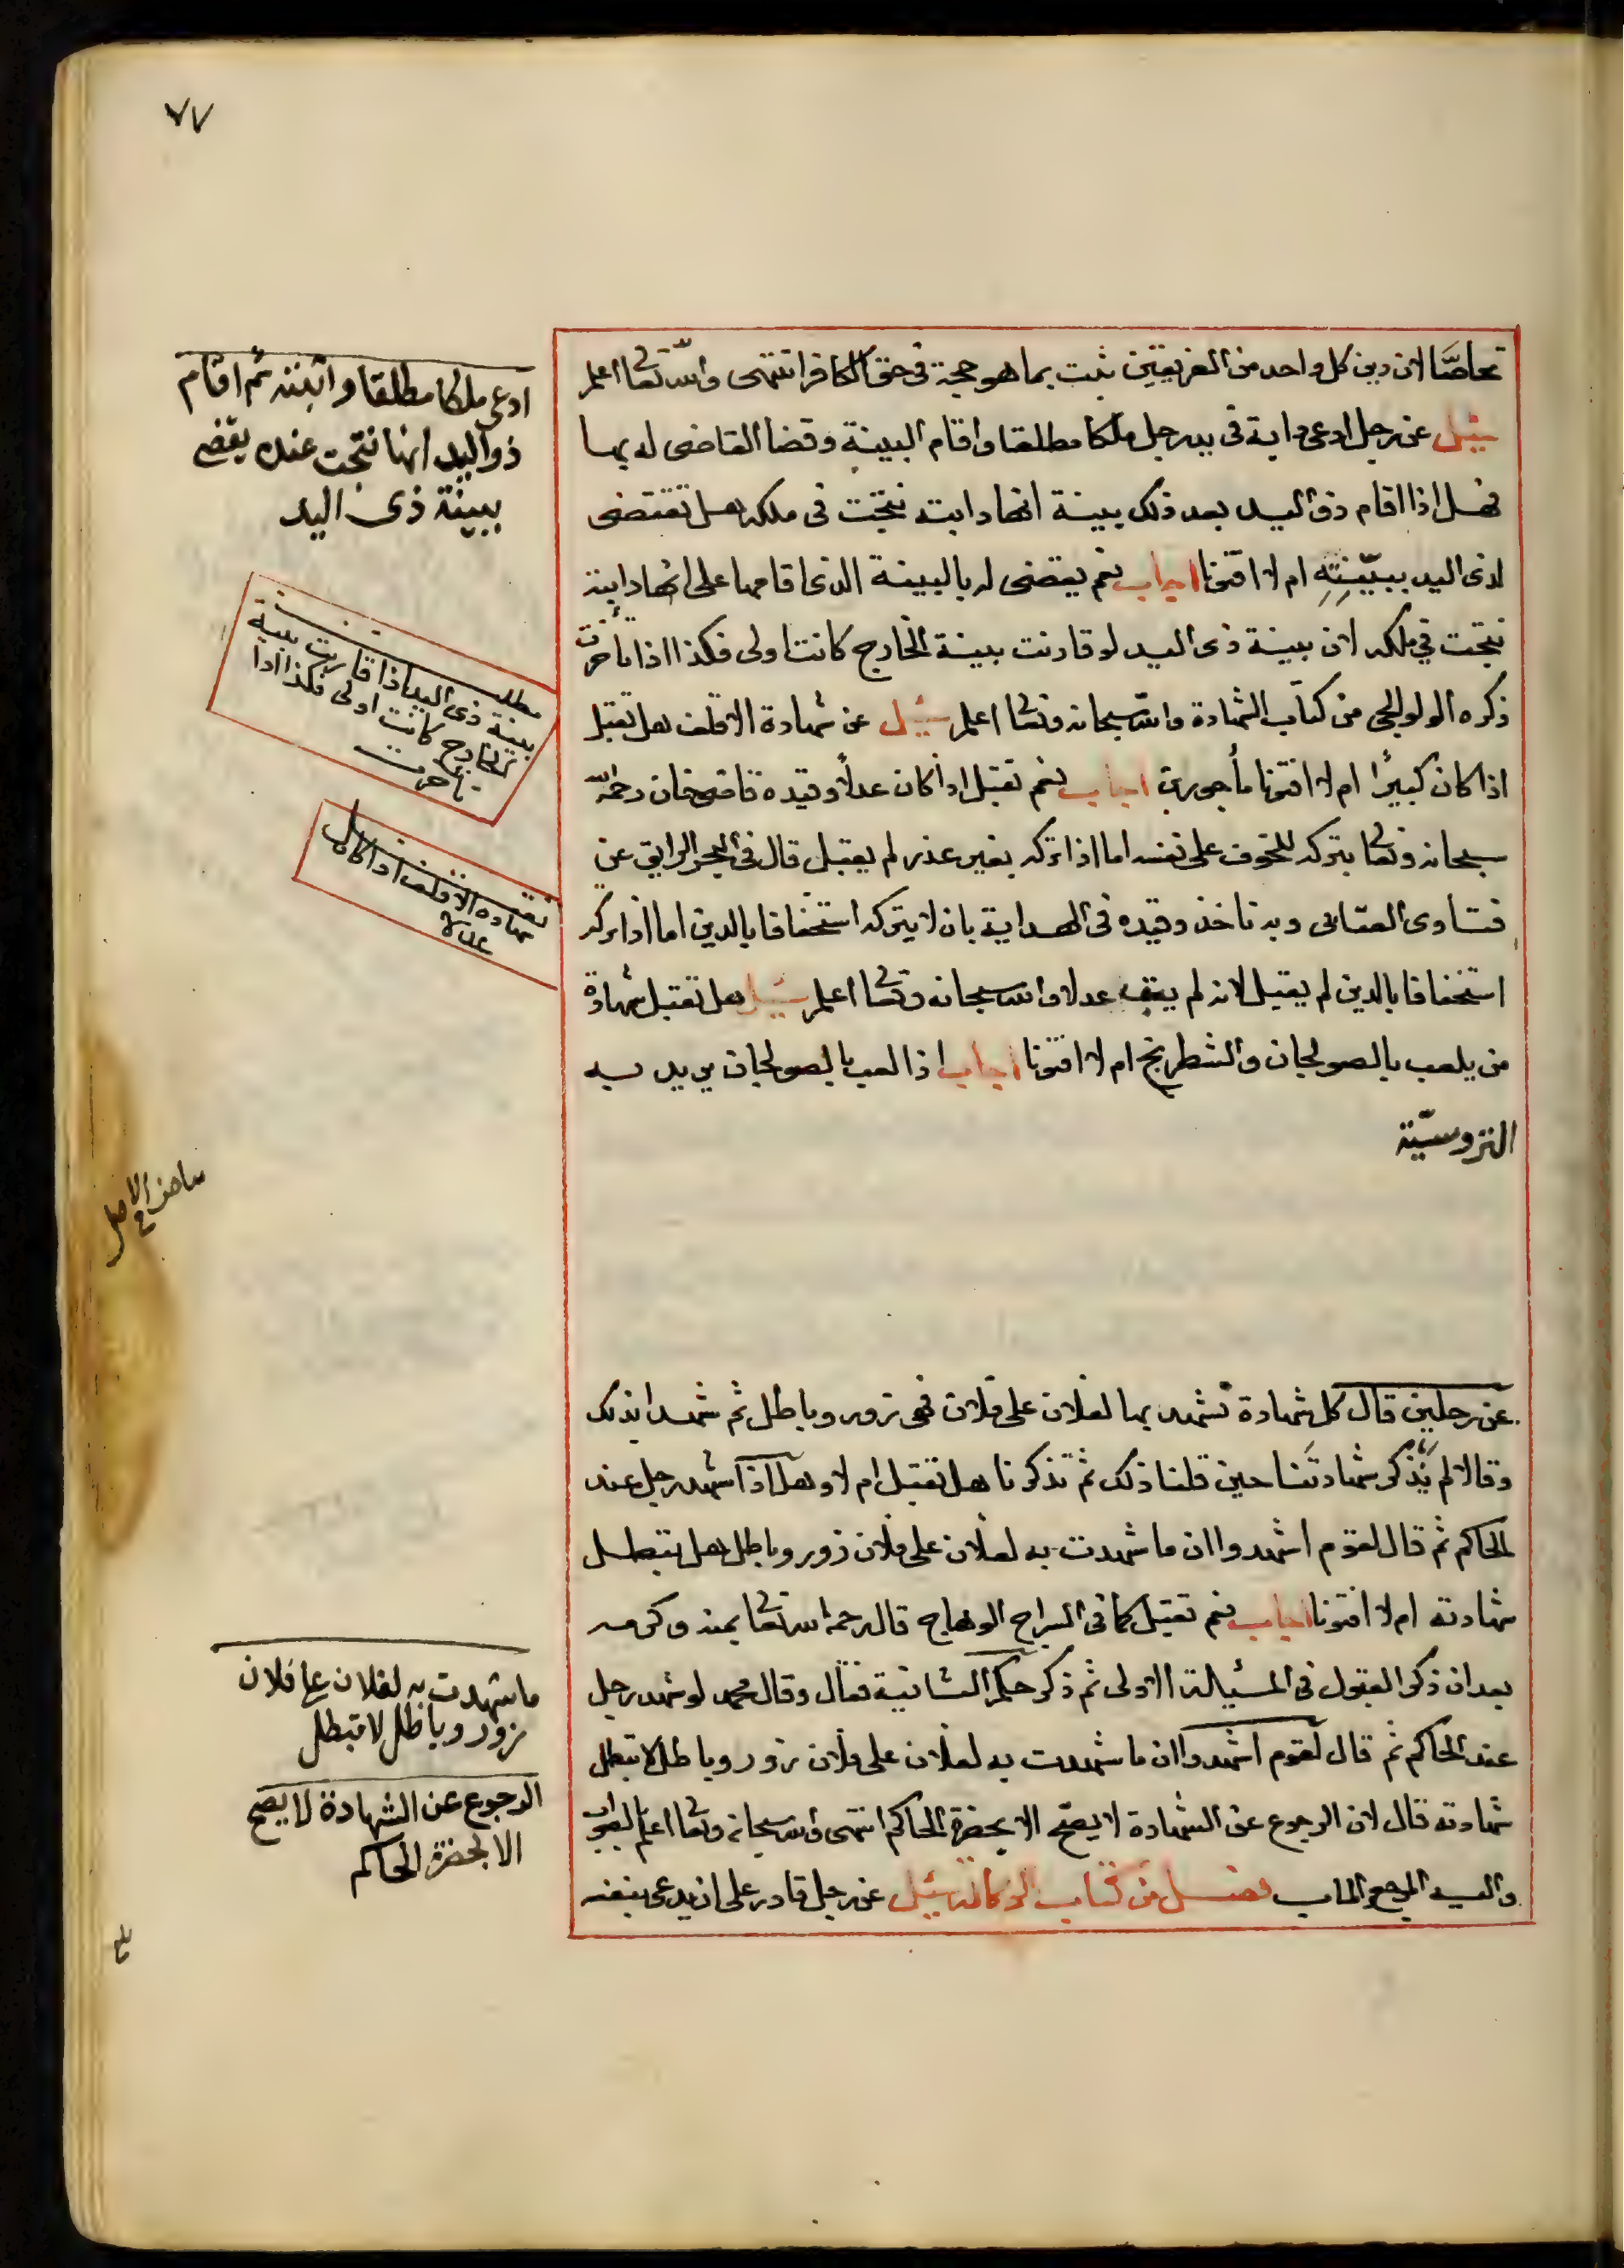 ٧٧
تحاصّا لان دين كل واحد من الفريقين يثبت بما هو حجة في حق الكافر انتهى والله تعا اعلم
سئل عن رجل ادعى دابة في يد رجل ملكا مطلقا واقام البينة وقضا القاضى له بها
فهل اذا اقام ذو اليد بعد ذلك بينة انها دابته نتجت في ملكه هل تقتضى
لذى اليد ببيّنتِهِ ام لا افتونا اجاب نعم يقتضى له بالبينة الذى اقامها على انها دابته
نتجت في ملكه لان بينة ذى اليد لو قارنت بينة الخارج كانت اولى فكذا اذا تأخرت
ذكره الولوالجى من كتاب الشهادة والله سبحانه وتعا اعلم سئيل عن شهادة الاقلف هل تقبل
اذا كان كبيرًا ام لا افتونا مأجورين اجاب نعم تقبل اذا كان عدلاً وقيده قاضى خان رحمه الله
سبحانه وتعا بتركه للخوف على نفسه اما اذا تركه بغير عذر لم يقبل قال في البحر الرايق عن
فتاوى العتابى وبه ناخذ وقيده في الهداية بان لا يتركه استخفافا بالدين اما اذا تركه
استخفافا بالدين لم يقبل لانه لم يبق عدلا والله سبحانه وتعا اعلم سئيل هل تقبل شهادة
من يلعب بالصولجان والشطرنج ام لا افتونا اجاب اذا لعب بالصولجان يريد به
الفروسيّة
عن رجلين قال كل شهادة نشهد بها لفلان على فلان فهى زور وباطل ثم شهدا بذلك
وقالا لم نذكر شهادتنا حين قلنا ذلك ثم تذكرنا هل تقبل ام لا وهل اذا شهد رجل عند
الحاكم ثم قال لقوم اشهدوا ان ما شهدت به لفلان على فلان زور وباطل هل تبطل
شهادته ام لا افتونا اجاب نعم تقبل كما في السراج الوهاج قال رحمه الله تعا بمنه وكرمه
بعد ان ذكر القبول في المسئيلة الاولى ثم ذكر حكم الثانية فقال وقال محمد لو شهد رجل
عند الحاكم ثم قال لقوم اشهدوا ان ما شهدت به لفلان على فلان زور وباطل لا تبطل
شهادته قال لان الرجوع عن الشهادة لا يصحّ الا بحضرة الحاكم انتهى والله سبحانه وتعا اعلم بالصواب
واليه المرجع والماب فصل من كتاب الوكالة سئيل عن رجل قادر على ان يدعى بنفسه
ادعى ملكا مطلقا واثبته ثم اقام
ذو اليد انها نتجت عنده يقضى
ببينة ذى اليد
مطلب
بينة ذى اليد اذا قارنت بينة
الخارج كانت اولى فكذا اذا
تاخرت
تقبل
شهادة الاقلف اذا كان
عدلا
بياض في الاصل
ما شهدت به لفلان على فلان
زور وباطل لا تبطل
الرجوع عن الشهادة لا يصح
الا بحضرة الحاكم